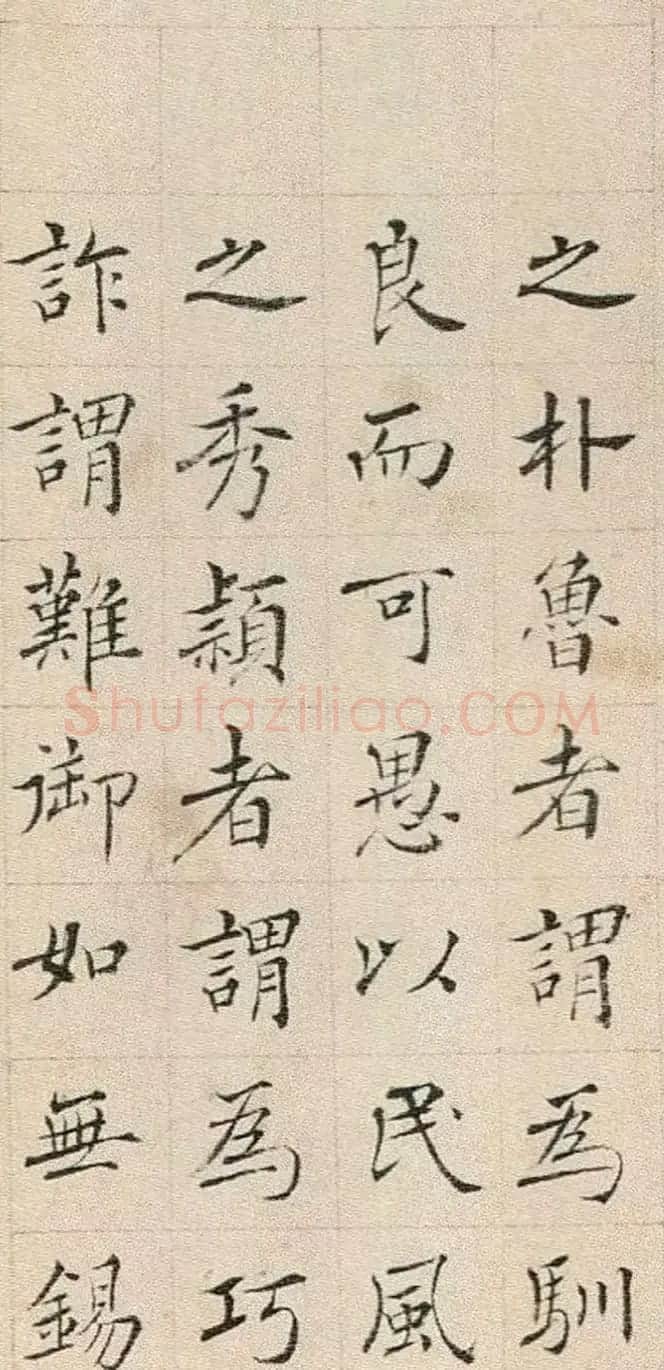 之朴魯者謂為馴
良而可愚以民風
之秀穎者謂為巧
詐謂難御如無錫
Shufaziliao.COM